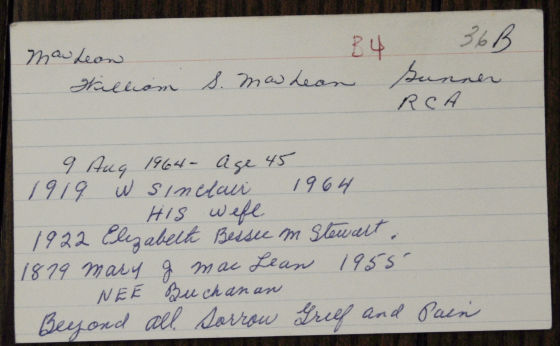 MacLean B4 36B
William S. MacLean Gunner
RCA
9 Aug 1964 - Age 45
1919 W Sinclair 1964
HIS Wife
1922 Elizabeth Bessie M Stewart.
1879 Mary J MacLean 1955
NEE Buchanan
Beyond All Sorrow Grief and Pain